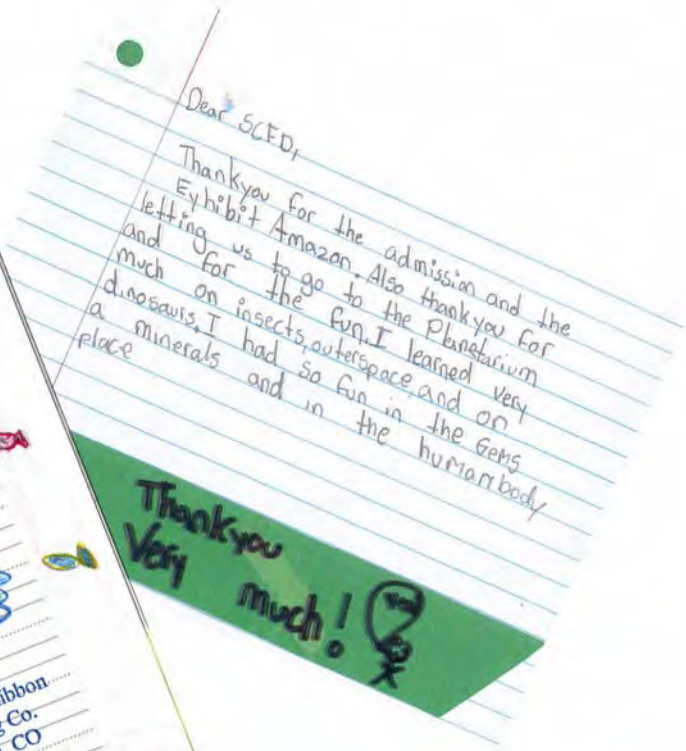 Dear SCFD,
Thankyou for the admission and the
Eyhibit Amazon. Also thankyou for
letting us to go to the Planetarium
and for the fun. I learned very
much on insects, outerspace, and on
dinosaurs, I had so fun in the Gems
a minerals and in the humanbody
place
Thankyou
Very much!
ibbon
g Co.
CO